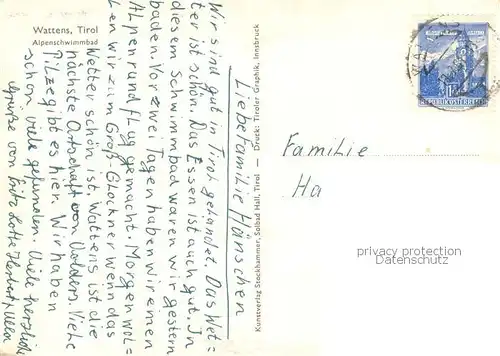 Wattens, Tirol
Alpenschwimmbad
Liebe Familie Hänschen
Wir sind gut in Tirol gelandet. Das Wet=
ter ist schön. Das Essen ist auch gut. In
diesem Schwimmbad waren wir gestern
baden. Vor zwei Tagen haben wir einen
Alpenrundflug gemacht. Morgen wol=
len wir zum Groß-Glockner wenn das
Wetter schön ist. Wattens ist die
nächste Ortschaft von Volders. Viehe
Pilze gibt es hier. Wir haben
schon viele gefunden. Viele herzliche
Grüße von Fritz Lotte Herbert + Ulla
Kunstverlag Stockhammer, Solbad Hall, Tirol — Druck: Tiroler Graphik, Innsbruck
REPUBLIK ÖSTERREICH
Familie
Ha
privacy protection
Datenschutz